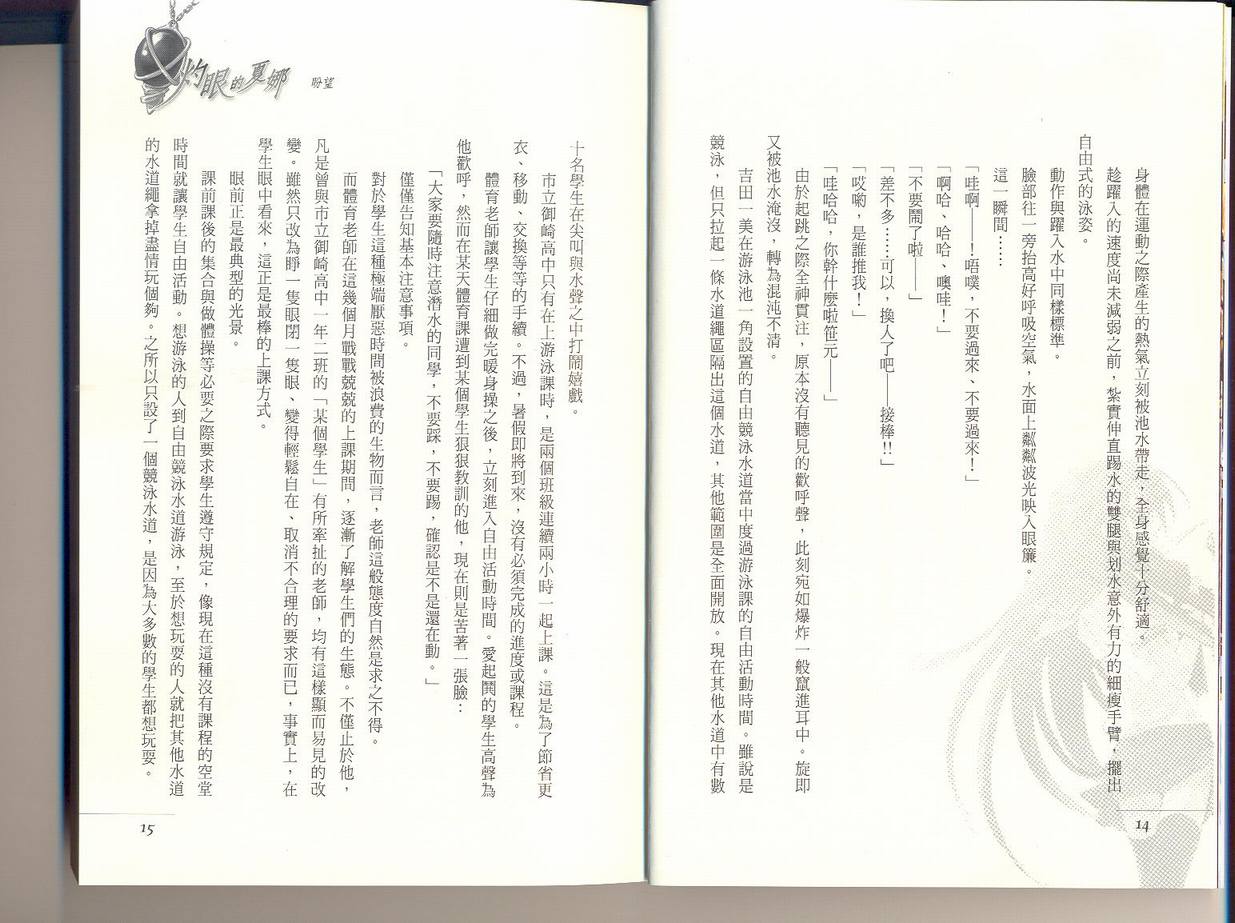 身體在運動之際產生的熱氣立刻被池水帶走，全身感覺十分舒適。
趁躍入的速度尚未減弱之前，紮實伸直踢水的雙腿與划水意外有力的細瘦手臂，擺出
自由式的泳姿。
動作與躍入水中同樣標準。
臉部往一旁抬高好呼吸空氣，水面上粼粼波光映入眼簾。
這一瞬間……
「哇啊——！唔噗，不要過來、不要過來！」
「啊哈、哈哈、噢哇！」
「不要鬧了啦——」
「差不多……可以，換人了吧——接棒!!」
「哎喲，是誰推我！」
「哇哈哈，你幹什麼啦笹元——」
由於起跳之際全神貫注，原本沒有聽見的歡呼聲，此刻宛如爆炸一般竄進耳中。旋即
又被池水淹沒，轉為混沌不清。
吉田一美在游泳池一角設置的自由競泳水道當中度過游泳課的自由活動時間。雖說是
競泳，但只拉起一條水道繩區隔出這個水道，其他範圍是全面開放。現在其他水道中有數
14
灼眼的夏娜 盼望
十名學生在尖叫與水聲之中打鬧嬉戲。
市立御崎高中只有在上游泳課時，是兩個班級連續兩小時一起上課。這是為了節省更
衣、移動、交換等等的手續。不過，暑假即將到來，沒有必須完成的進度或課程。
體育老師讓學生仔細做完暖身操之後，立刻進入自由活動時間。愛起鬨的學生高聲為
他歡呼，然而在某天體育課遭到某個學生狠狠教訓的他，現在則是苦著一張臉：
「大家要隨時注意潛水的同學，不要踩，不要踢，確認是不是還在動。」
僅僅告知基本注意事項。
對於學生這種極端厭惡時間被浪費的生物而言，老師這般態度自然是求之不得。
而體育老師在這幾個月戰戰兢兢的上課期間，逐漸了解學生們的生態。不僅止於他，
凡是曾與市立御崎高中一年二班的「某個學生」有所牽扯的老師，均有這樣顯而易見的改
變。雖然只改為睜一隻眼閉一隻眼、變得輕鬆自在、取消不合理的要求而已，事實上，在
學生眼中看來，這正是最棒的上課方式。
眼前正是最典型的光景。
課前課後的集合與做體操等必要之際要求學生遵守規定，像現在這種沒有課程的空堂
時間就讓學生自由活動。想游泳的人到自由競泳水道游泳，至於想玩耍的人就把其他水道
的水道繩拿掉盡情玩個夠。之所以只設了一個競泳水道，是因為大多數的學生都想玩耍。
15